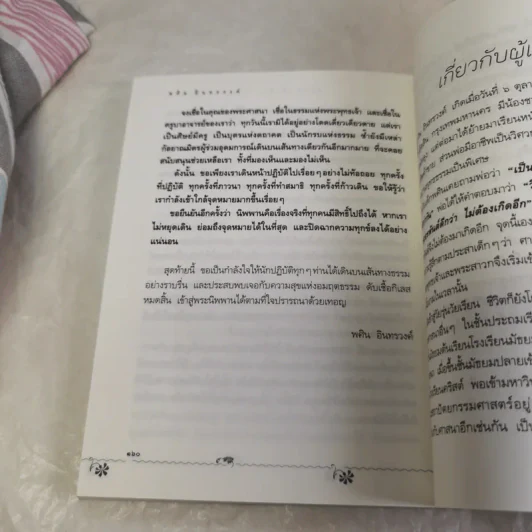 พศิน อินทรวงค์
จงเชื่อในคุณของพระศาสนา เชื่อในธรรมแห่งพระพุทธเจ้า และเชื่อใน
ครูบาอาจารย์ของเราว่า ทุกวันนี้เรามิได้อยู่อย่างโดดเดี่ยวเดียวดาย แต่เรา
เป็นศิษย์มีครู เป็นบุตรแห่งตถาคต เป็นนักรบแห่งธรรม ซ้ำยังมีเหล่า
กัลยาณมิตรผู้ร่วมอุดมการณ์เดินบนเส้นทางเดียวกันอีกมากมาย ที่จะคอย
สนับสนุนช่วยเหลือเรา ทั้งที่มองเห็นและมองไม่เห็น
ดังนั้น ขอเพียงเราเดินหน้าปฏิบัติไปเรื่อยๆ อย่างไม่ท้อถอย ทุกครั้ง
ที่ปฏิบัติ ทุกครั้งที่ภาวนา ทุกครั้งที่ทำสมาธิ ทุกครั้งที่ก้าวเดิน ขอให้รู้ว่า
เรากำลังเข้าใกล้จุดหมายมากขึ้นเรื่อยๆ
ขอยืนยันอีกครั้งว่า นิพพานคือเรื่องจริงที่ทุกคนมีสิทธิ์ไปถึงได้ หากเรา
ไม่หยุดเดิน ย่อมถึงจุดหมายได้ในที่สุด และปิดฉากความทุกข์ลงได้อย่าง
แน่นอน
สุดท้ายนี้ ขอเป็นกำลังใจให้นักปฏิบัติทุกๆ ท่านได้เดินบนเส้นทางธรรม
อย่างราบรื่น และประสบพบเจอกับความสุขแห่งอมฤตธรรม ดับเชื้อกิเลส
หมดสิ้น เข้าสู่พระนิพพานได้ตามที่ใจปรารถนาด้วยเทอญ
พศิน อินทรวงค์
๑๖๐
เกี่ยวกับผู้
อินทรวงค์ เกิดเมื่อวันที่ ๖ ตุลา
กรุงเทพมหานคร มีน้อง
แต่ต่อมาได้ย้ายมาเรียน
ส่วนพ่อมีอาชีพเป็นวิศว
ธรรมเป็นพิเศษ
เคยถามพ่อว่า "เป็น
พ่อได้ให้คำตอบมาว่า
ดีกว่า ไม่ต้องเกิดอีก"
ไม่ต้องมาเกิดอีก จุดนี้เอง
ตามประสาเด็กๆ ว่า
และพระสาวกจึงเริ่ม
ในเวลานั้น
วัยเรียน ชีวิตก็ยัง
อื่นๆ ในชั้นประถม
ต้นเรียนโรงเรียนมัธยม
เมื่อขึ้นชั้นมัธยมปลาย
คริสต์ พอเข้ามหาวิ
สถาปัตยกรรมศาสตร์อยู่
ศาสนาอีกเช่นกัน เป็